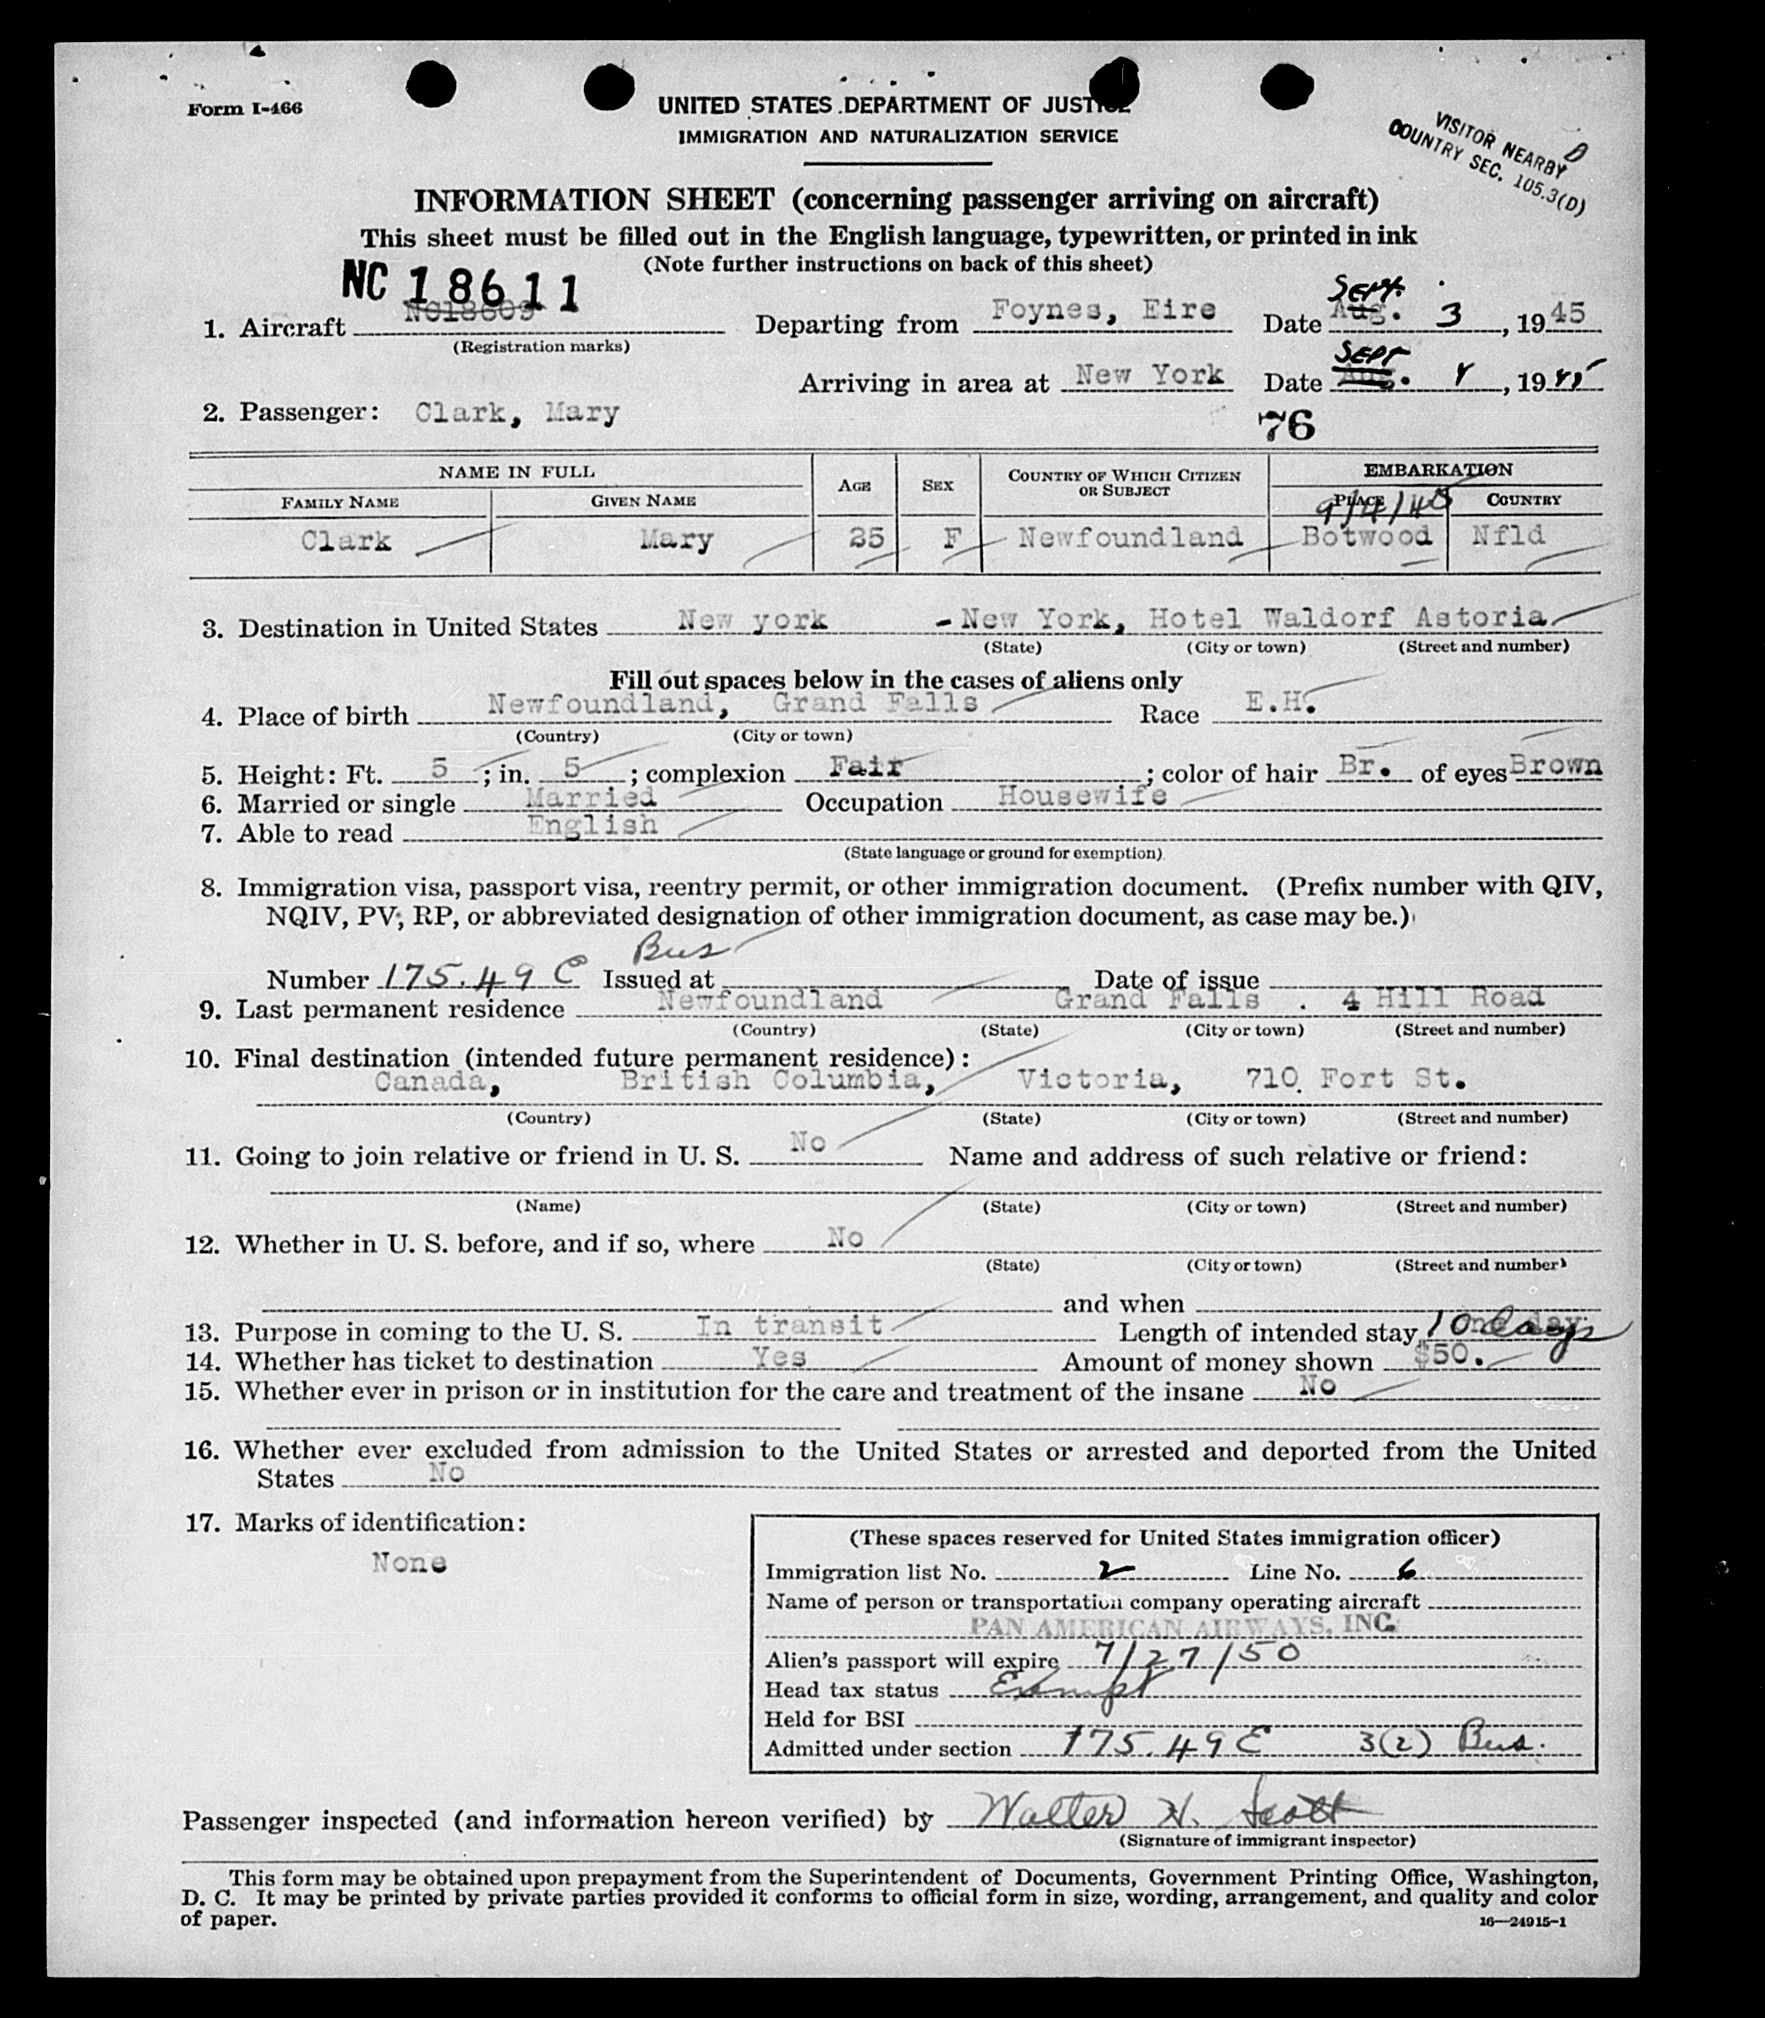 Form I-466
UNITED STATES DEPARTMENT OF JUSTICE
IMMIGRATION AND NATURALIZATION SERVICE
VISITOR NEARBY
COUNTRY SEC. 105.3(D)
INFORMATION SHEET (concerning passenger arriving on aircraft)
This sheet must be filled out in the English language, typewritten, or printed in ink
(Note further instructions on back of this sheet)
NC 18611
1. Aircraft NC18609 Departing from Foynes, Eire Date Aug. Sept. 3, 1945
(Registration marks)
Arriving in area at New York Date Aug. Sept 4, 1945
2. Passenger: Clark, Mary
76
NAME IN FULL AGE SEX COUNTRY OF WHICH CITIZEN OR SUBJECT EMBARKATION
FAMILY NAME GIVEN NAME PLACE COUNTRY
9/4/45
Clark Mary 25 F Newfoundland Botwood Nfld
3. Destination in United States New york - New York, Hotel Waldorf Astoria
(State) (City or town) (Street and number)
Fill out spaces below in the cases of aliens only
4. Place of birth Newfoundland, Grand Falls Race E.H.
(Country) (City or town)
5. Height: Ft. 5; in. 5; complexion Fair; color of hair Br. of eyes Brown
6. Married or single Married Occupation Housewife
7. Able to read English
(State language or ground for exemption)
8. Immigration visa, passport visa, reentry permit, or other immigration document. (Prefix number with QIV,
NQIV, PV, RP, or abbreviated designation of other immigration document, as case may be.)
Bus
Number 175.49 E Issued at Date of issue
9. Last permanent residence Newfoundland Grand Falls . 4 Hill Road
(Country) (State) (City or town) (Street and number)
10. Final destination (intended future permanent residence):
Canada, British Columbia, Victoria, 710 Fort St.
(Country) (State) (City or town) (Street and number)
11. Going to join relative or friend in U. S. No Name and address of such relative or friend:
(Name) (State) (City or town) (Street and number)
12. Whether in U. S. before, and if so, where No
(State) (City or town) (Street and number)
and when
13. Purpose in coming to the U. S. In transit Length of intended stay One day 10 days
14. Whether has ticket to destination Yes Amount of money shown $50.
15. Whether ever in prison or in institution for the care and treatment of the insane No
16. Whether ever excluded from admission to the United States or arrested and deported from the United
States No
17. Marks of identification:
None
(These spaces reserved for United States immigration officer)
Immigration list No. 2 Line No. 6
Name of person or transportation company operating aircraft
PAN AMERICAN AIRWAYS, INC.
Alien's passport will expire 7/27/50
Head tax status Exempt
Held for BSI
Admitted under section 175.49 E 3(2) Bus.
Passenger inspected (and information hereon verified) by Walter H. Scott
(Signature of immigrant inspector)
This form may be obtained upon prepayment from the Superintendent of Documents, Government Printing Office, Washington,
D. C. It may be printed by private parties provided it conforms to official form in size, wording, arrangement, and quality and color
of paper.
16—24915-1